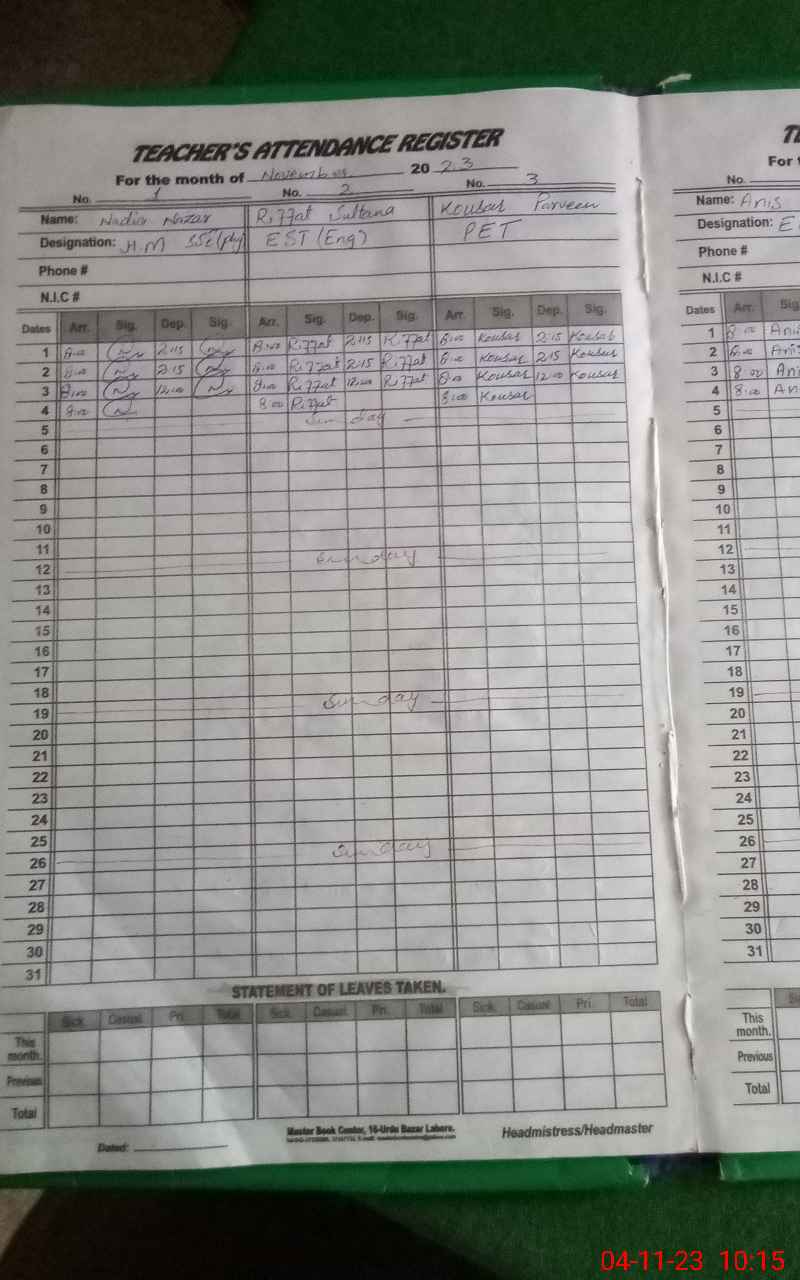 TEACHER'S ATTENDANCE REGISTER
For the month of November 20 23
No. 1 No. 2 No. 3
Name: Nadia Nazar Riffat Sultana Kousar Parveen
Designation: H.M SSE(phy) EST (Eng) PET
Phone #
N.I.C #
Dates Arr. Sig. Dep. Sig. Arr. Sig. Dep. Sig. Arr. Sig. Dep. Sig.
1 8:00 2:15 8:00 Riffat 2:15 Riffat 8:00 Kousar 2:15 Kousar
2 8:00 2:15 8:00 Riffat 2:15 Riffat 8:00 Kousar 2:15 Kousar
3 8:00 12:00 8:00 Riffat 12:00 Riffat 8:00 Kousar 12:00 Kousar
4 8:00 8:00 Riffat 8:00 Kousar
5 Sunday
6
7
8
9
10
11
12 Sunday
13
14
15
16
17
18
19 Sunday
20
21
22
23
24
25
26 Sunday
27
28
29
30
31
STATEMENT OF LEAVES TAKEN.
Sick. Casual. Pri. Total Sick. Casual. Pri. Total Sick. Casual. Pri. Total
This month.
Previous
Total
Master Book Center, 16-Urdu Bazar Lahore.
Dated: Headmistress/Headmaster
For
No.
Name: Anis
Designation: E
Phone #
N.I.C #
Dates Arr. Sig
1 8:00 Ani
2 8:00 Ani
3 8:00 Ani
4 8:00 An
5
6
7
8
9
10
11
12
13
14
15
16
17
18
19
20
21
22
23
24
25
26
27
28
29
30
31
This month.
Previous
Total
04-11-23 10:15